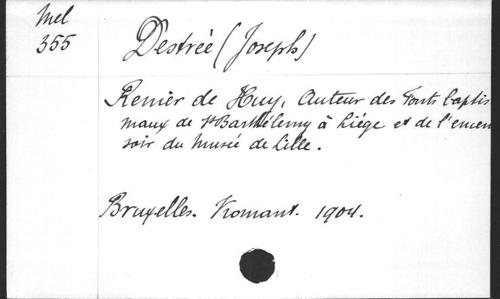 Mel
355
Destrée (Joseph)
Renier de Huy, Auteur des Fonts baptis
maux de St Barthélemy à Liége et de l'encen
soir du Musée de Lille.
Bruxelles. Vromant. 1904.